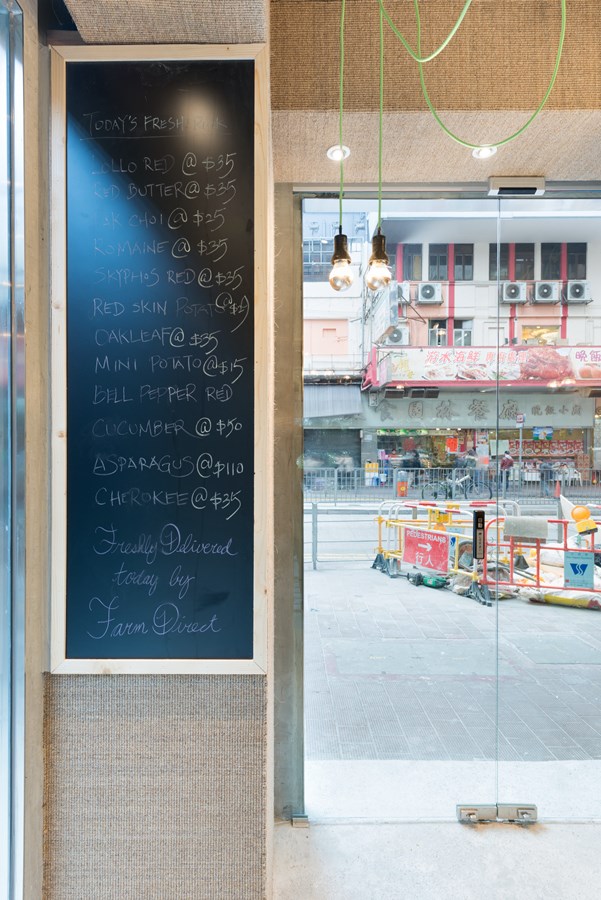 TODAY'S FRESH
LOLLO RED @ $35
RED BUTTER @ $35
BOK CHOI @ $25
ROMAINE @ $35
SKYPHOS RED @ $35
RED SKIN POTATO @
OAKLEAF @ $35
MINI POTATO @ $15
BELL PEPPER RED
CUCUMBER @ $50
ASPARAGUS @ $110
CHEROKEE @ $35
Freshly Delivered
today by
Farm Direct
游水海鮮
晚飯
晚飯小廚
PEDESTRIANS
行人